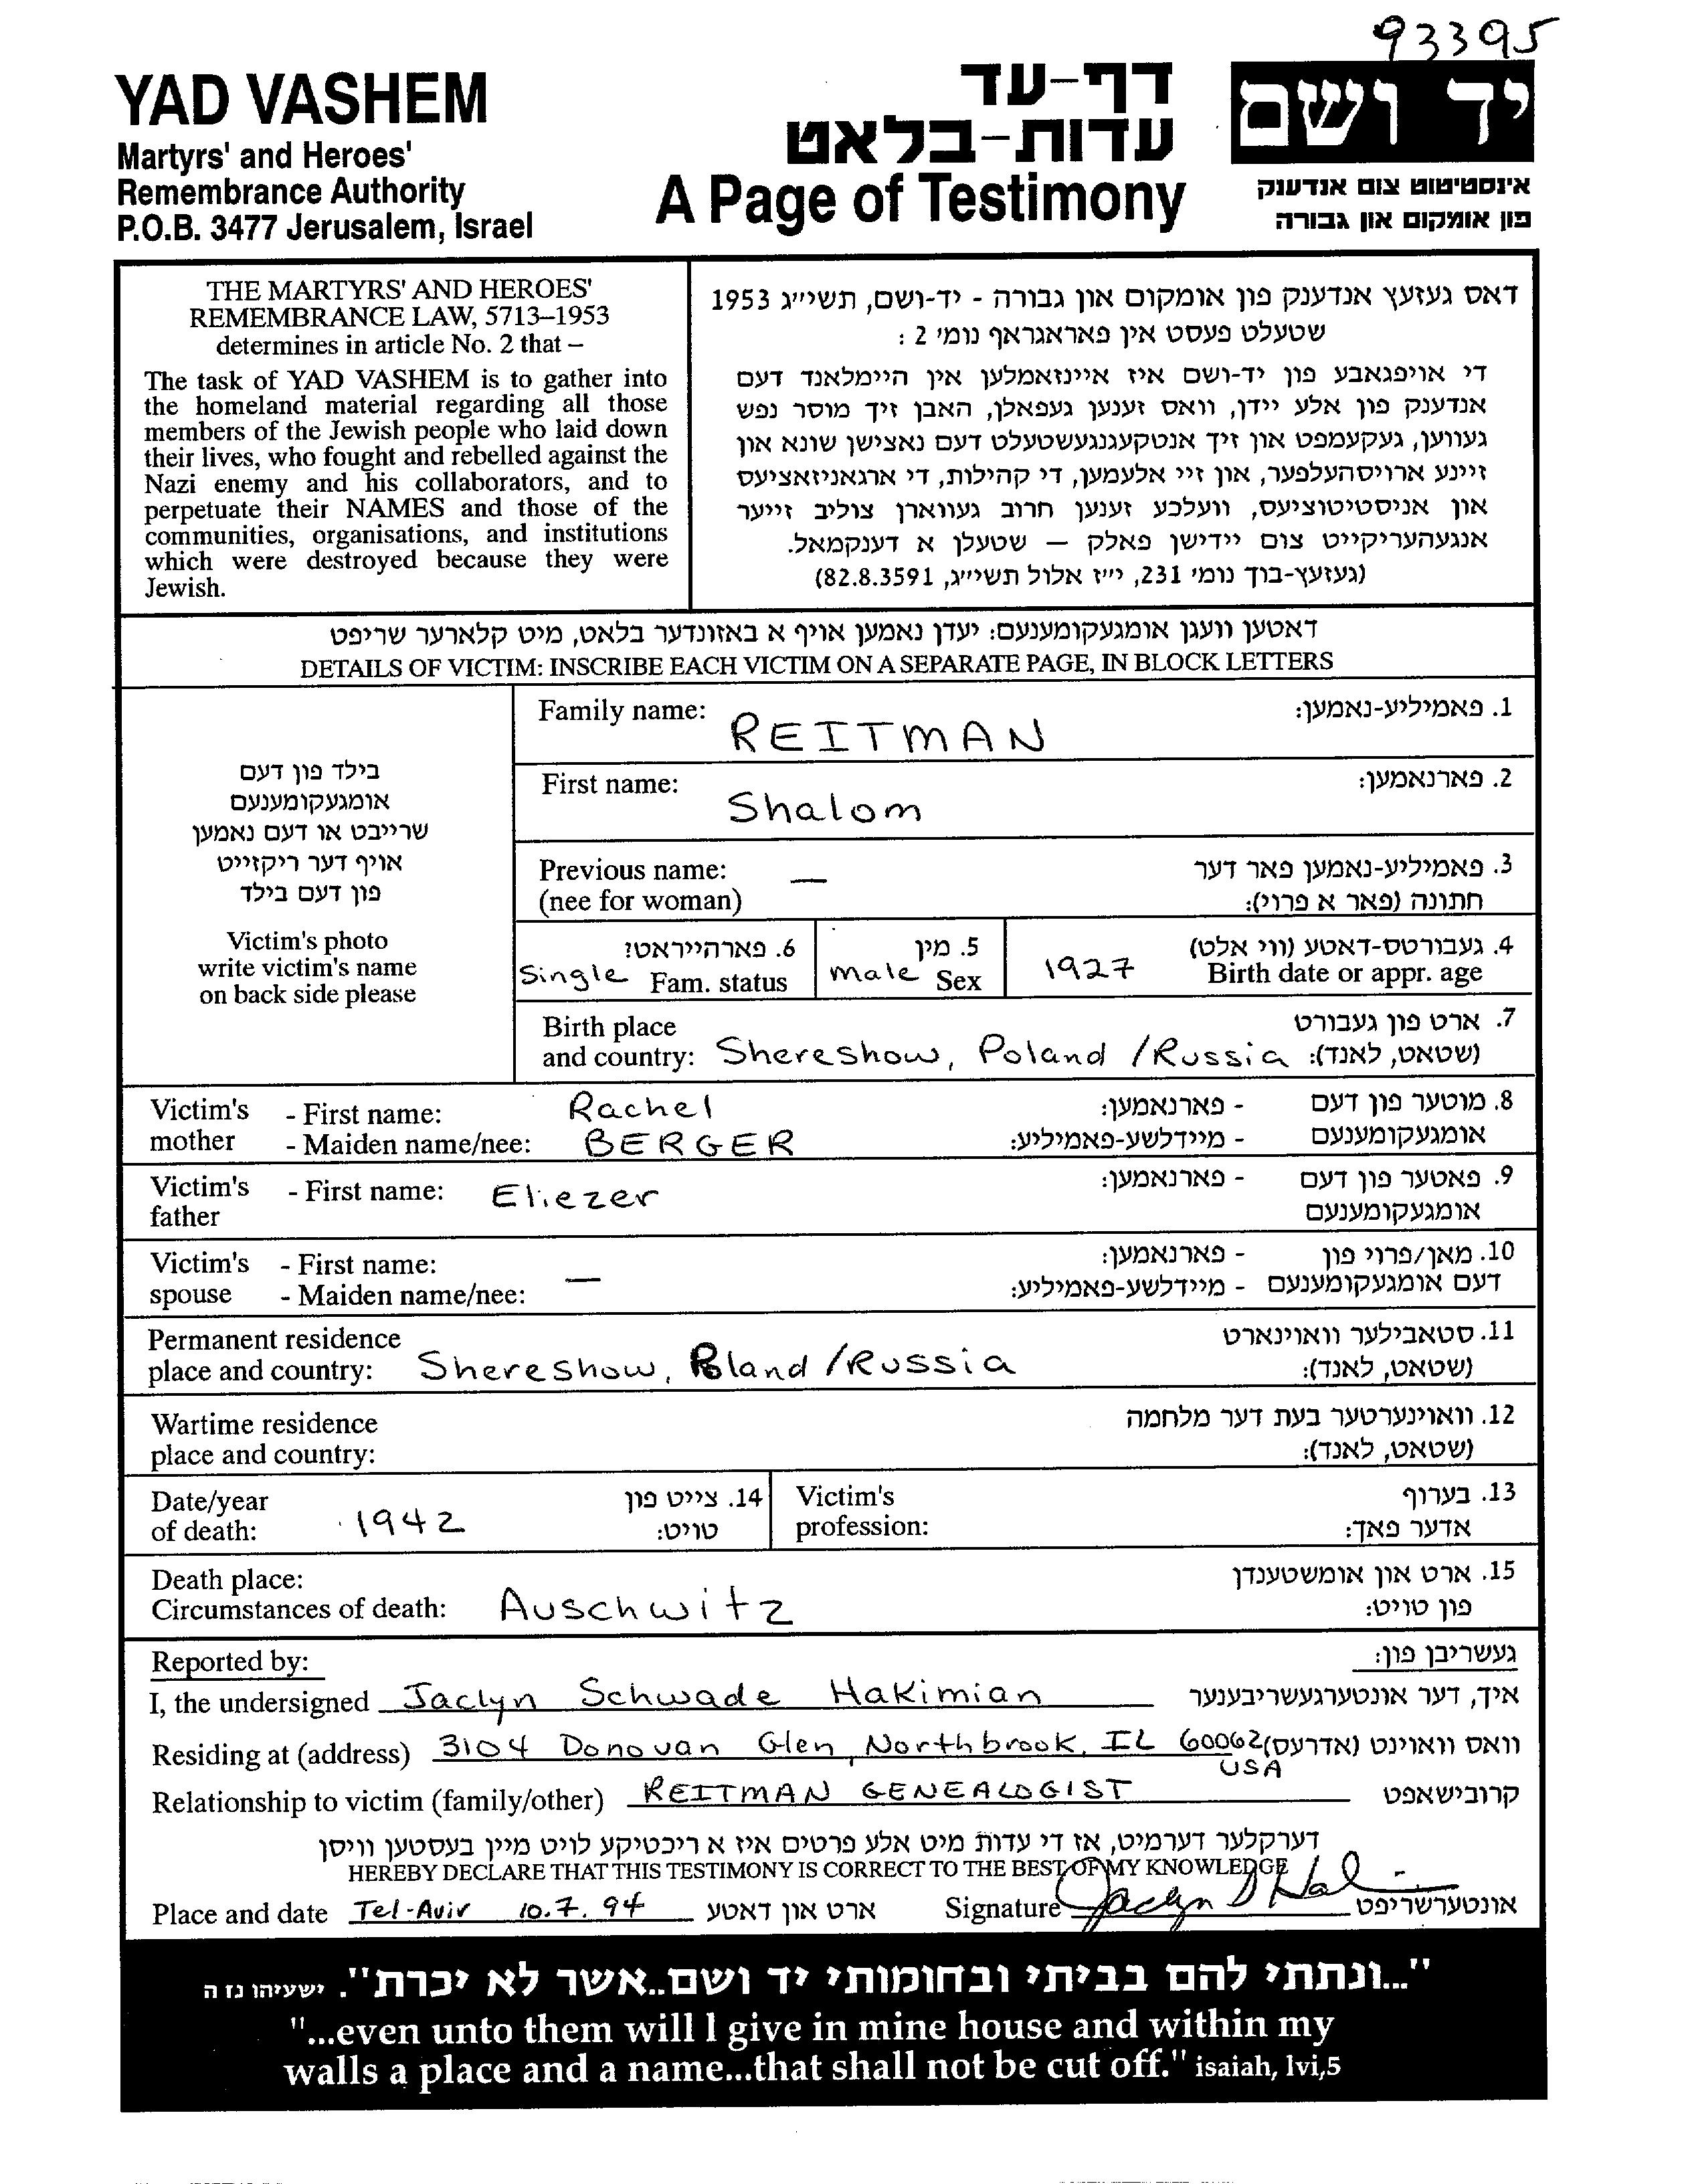 93395
YAD VASHEM
Martyrs' and Heroes'
Remembrance Authority
P.O.B. 3477 Jerusalem, Israel
דף-עד
עדות-בלאט
A Page of Testimony
יד ושם
אינסטיטוט צום אנדענק
פון אומקום און גבורה
THE MARTYRS' AND HEROES'
REMEMBRANCE LAW, 5713–1953
determines in article No. 2 that –
The task of YAD VASHEM is to gather into
the homeland material regarding all those
members of the Jewish people who laid down
their lives, who fought and rebelled against the
Nazi enemy and his collaborators, and to
perpetuate their NAMES and those of the
communities, organisations, and institutions
which were destroyed because they were
Jewish.
דאס געזעץ אנדענק פון אומקום און גבורה - יד-ושם, תשי״ג 1953
שטעלט פעסט אין פאראגראף נומ׳ 2 :
די אויפגאבע פון יד-ושם איז איינזאמלען אין היימלאנד דעם
אנדענק פון אלע יידן, וואס זענען געפאלן, האבן זיך מוסר נפש
געווען, געקעמפט און זיך אנטקעגנגעשטעלט דעם נאצישן שונא און
זיינע ארויסהעלפער, און זיי אלעמען, די קהילות, די ארגאניזאציעס
און אניסטיטוציעס, וועלכע זענען חרוב געווארן צוליב זייער
אנגעהעריקייט צום יידישן פאלק — שטעלן א דענקמאל.
(געזעץ-בוך נומ׳ 231, י״ז אלול תשי״ג, 82.8.3591)
דאטען וועגן אומגעקומענעם: יעדן נאמען אויף א באזונדער בלאט, מיט קלארער שריפט
DETAILS OF VICTIM: INSCRIBE EACH VICTIM ON A SEPARATE PAGE, IN BLOCK LETTERS
בילד פון דעם
אומגעקומענעם
שרייבט או דעם נאמען
אויף דער ריקזייט
פון דעם בילד
Victim's photo
write victim's name
on back side please
Family name: REITMAN 1. פאמיליע-נאמען:
First name: Shalom 2. פארנאמען:
Previous name: — 3. פאמיליע-נאמען פאר דער
(nee for woman) חתונה (פאר א פרוי):
6. פארהייראט? 5. מין 4. געבורטס-דאטע (ווי אלט)
Single Fam. status male Sex 1927 Birth date or appr. age
Birth place 7. ארט פון געבורט
and country: Shereshow, Poland /Russia (שטאט, לאנד):
Victim's - First name: Rachel - פארנאמען: 8. מוטער פון דעם
mother - Maiden name/nee: BERGER - מיידלשע-פאמיליע: אומגעקומענעם
Victim's - First name: Eliezer - פארנאמען: 9. פאטער פון דעם
father אומגעקומענעם
Victim's - First name: - פארנאמען: 10. מאן/פרוי פון
spouse - Maiden name/nee: — - מיידלשע-פאמיליע: דעם אומגעקומענעם
Permanent residence 11. סטאבילער וואוינארט
place and country: Shereshow, Poland /Russia (שטאט, לאנד):
Wartime residence 12. וואוינערטער בעת דער מלחמה
place and country: (שטאט, לאנד):
Date/year 14. צייט פון Victim's 13. בערוף
of death: 1942 טויט: profession: אדער פאך:
Death place: 15. ארט און אומשטענדן
Circumstances of death: Auschwitz פון טויט:
Reported by: געשריבן פון:
I, the undersigned Jaclyn Schwade Hakimian איך, דער אונטערגעשריבענער
Residing at (address) 3104 Donovan Glen, Northbrook, IL 60062 וואס וואוינט (אדרעס)
USA
Relationship to victim (family/other) REITMAN GENEALOGIST קרובישאפט
דערקלער דערמיט, אז די עדות מיט אלע פרטים איז א ריכטיקע לויט מיין בעסטען וויסן
HEREBY DECLARE THAT THIS TESTIMONY IS CORRECT TO THE BEST OF MY KNOWLEDGE
Place and date Tel-Aviv 10.7.94 ארט און דאטע Signature אונטערשריפט
"...ונתתי להם בביתי ובחומותי יד ושם..אשר לא יכרת". ישעיהו נז ה
"...even unto them will I give in mine house and within my
walls a place and a name...that shall not be cut off." isaiah, lvi,5